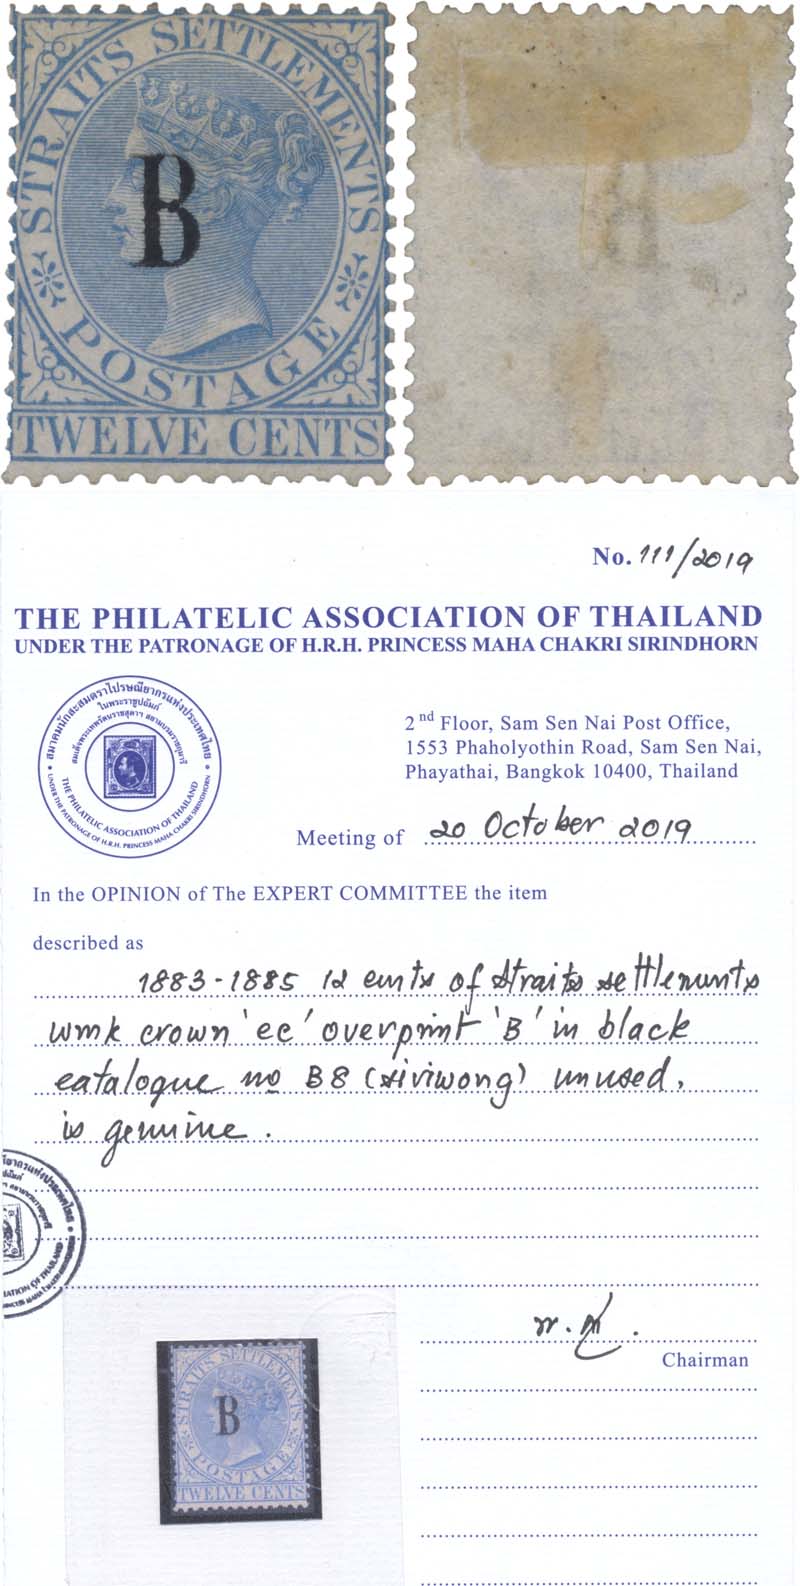 STRAITS SETTLEMENTS
B
POSTAGE
TWELVE CENTS
No. 111/2019
THE PHILATELIC ASSOCIATION OF THAILAND
UNDER THE PATRONAGE OF H.R.H. PRINCESS MAHA CHAKRI SIRINDHORN
สมาคมนักสะสมตราไปรษณียากรแห่งประเทศไทย
ในพระราชูปถัมภ์
สมเด็จพระเทพรัตนราชสุดาฯ สยามบรมราชกุมารี
THE PHILATELIC ASSOCIATION OF THAILAND
UNDER THE PATRONAGE OF H.R.H. PRINCESS MAHA CHAKRI SIRINDHORN
2nd Floor, Sam Sen Nai Post Office,
1553 Phaholyothin Road, Sam Sen Nai,
Phayathai, Bangkok 10400, Thailand
Meeting of 20 October 2019
In the OPINION of The EXPERT COMMITTEE the item
described as
1883-1885 12 cents of Straits settlements
wmk crown 'cc' overprint 'B' in black
catalogue no B8 (siriwong) unused.
is genuine.
Chairman
STRAITS SETTLEMENTS
B
POSTAGE
TWELVE CENTS